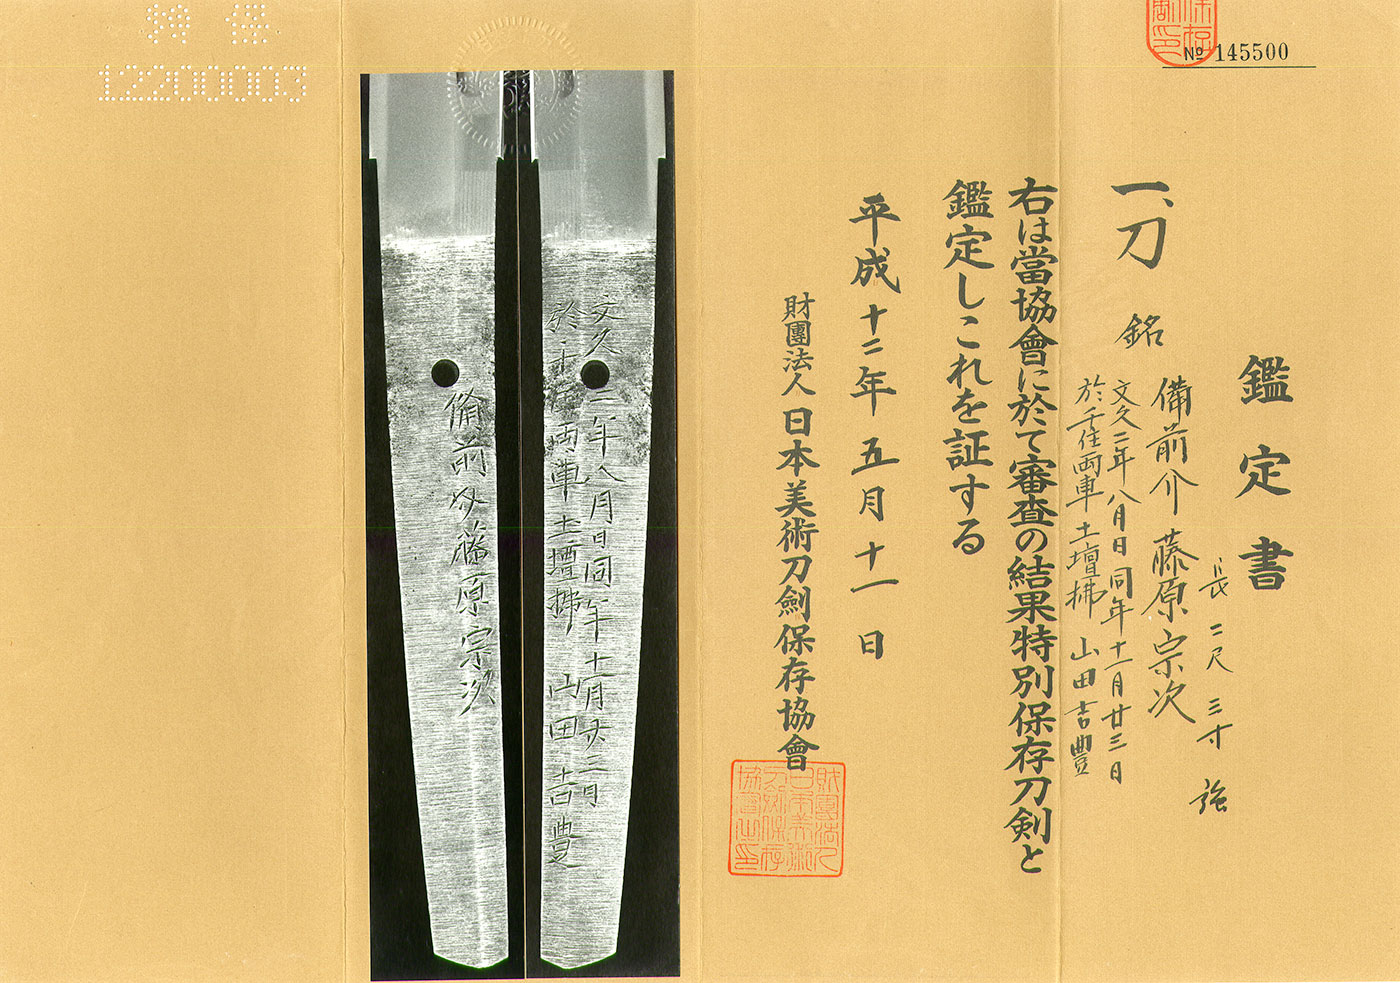 № 145500
鑑定書
長 二尺三寸強
一、刀 銘 備前介藤原宗次
文久二年八月日同年十一月廿三日
於千住両車土壇拂 山田吉豊
右は當協會に於て審査の結果特別保存刀剣と
鑑定しこれを証する
平成十二年五月十一日
財團法人日本美術刀劍保存協會
文久二年八月日同年十一月廿三日
於千住両車土壇拂 山田吉豊
備前介藤原宗次
特保
12200003